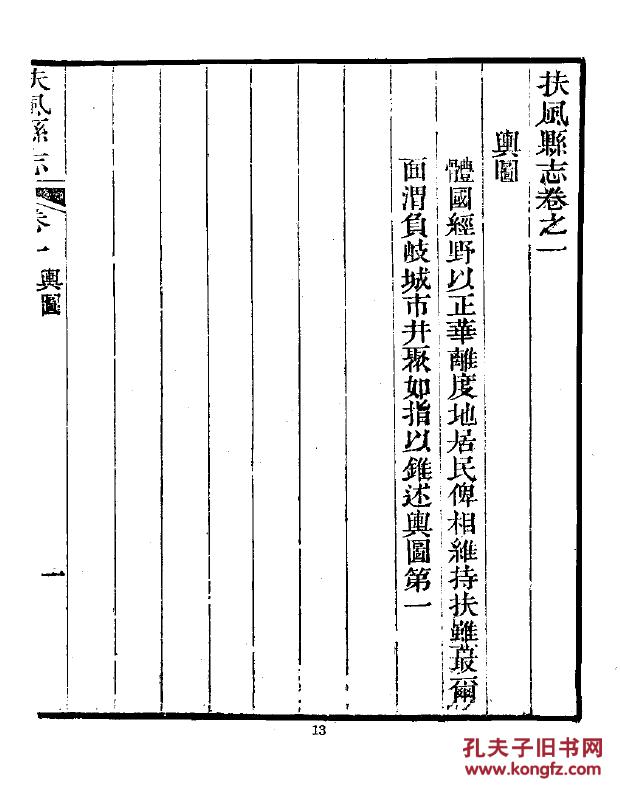 扶風縣志卷之一
輿圖
體國經野以正華離度地居民俾相維持扶雖蕞爾
面渭負岐城市井聚如指以錐述輿圖第一
扶風縣志
卷一
輿圖
一
13
孔夫子旧书网
www.kongfz.com